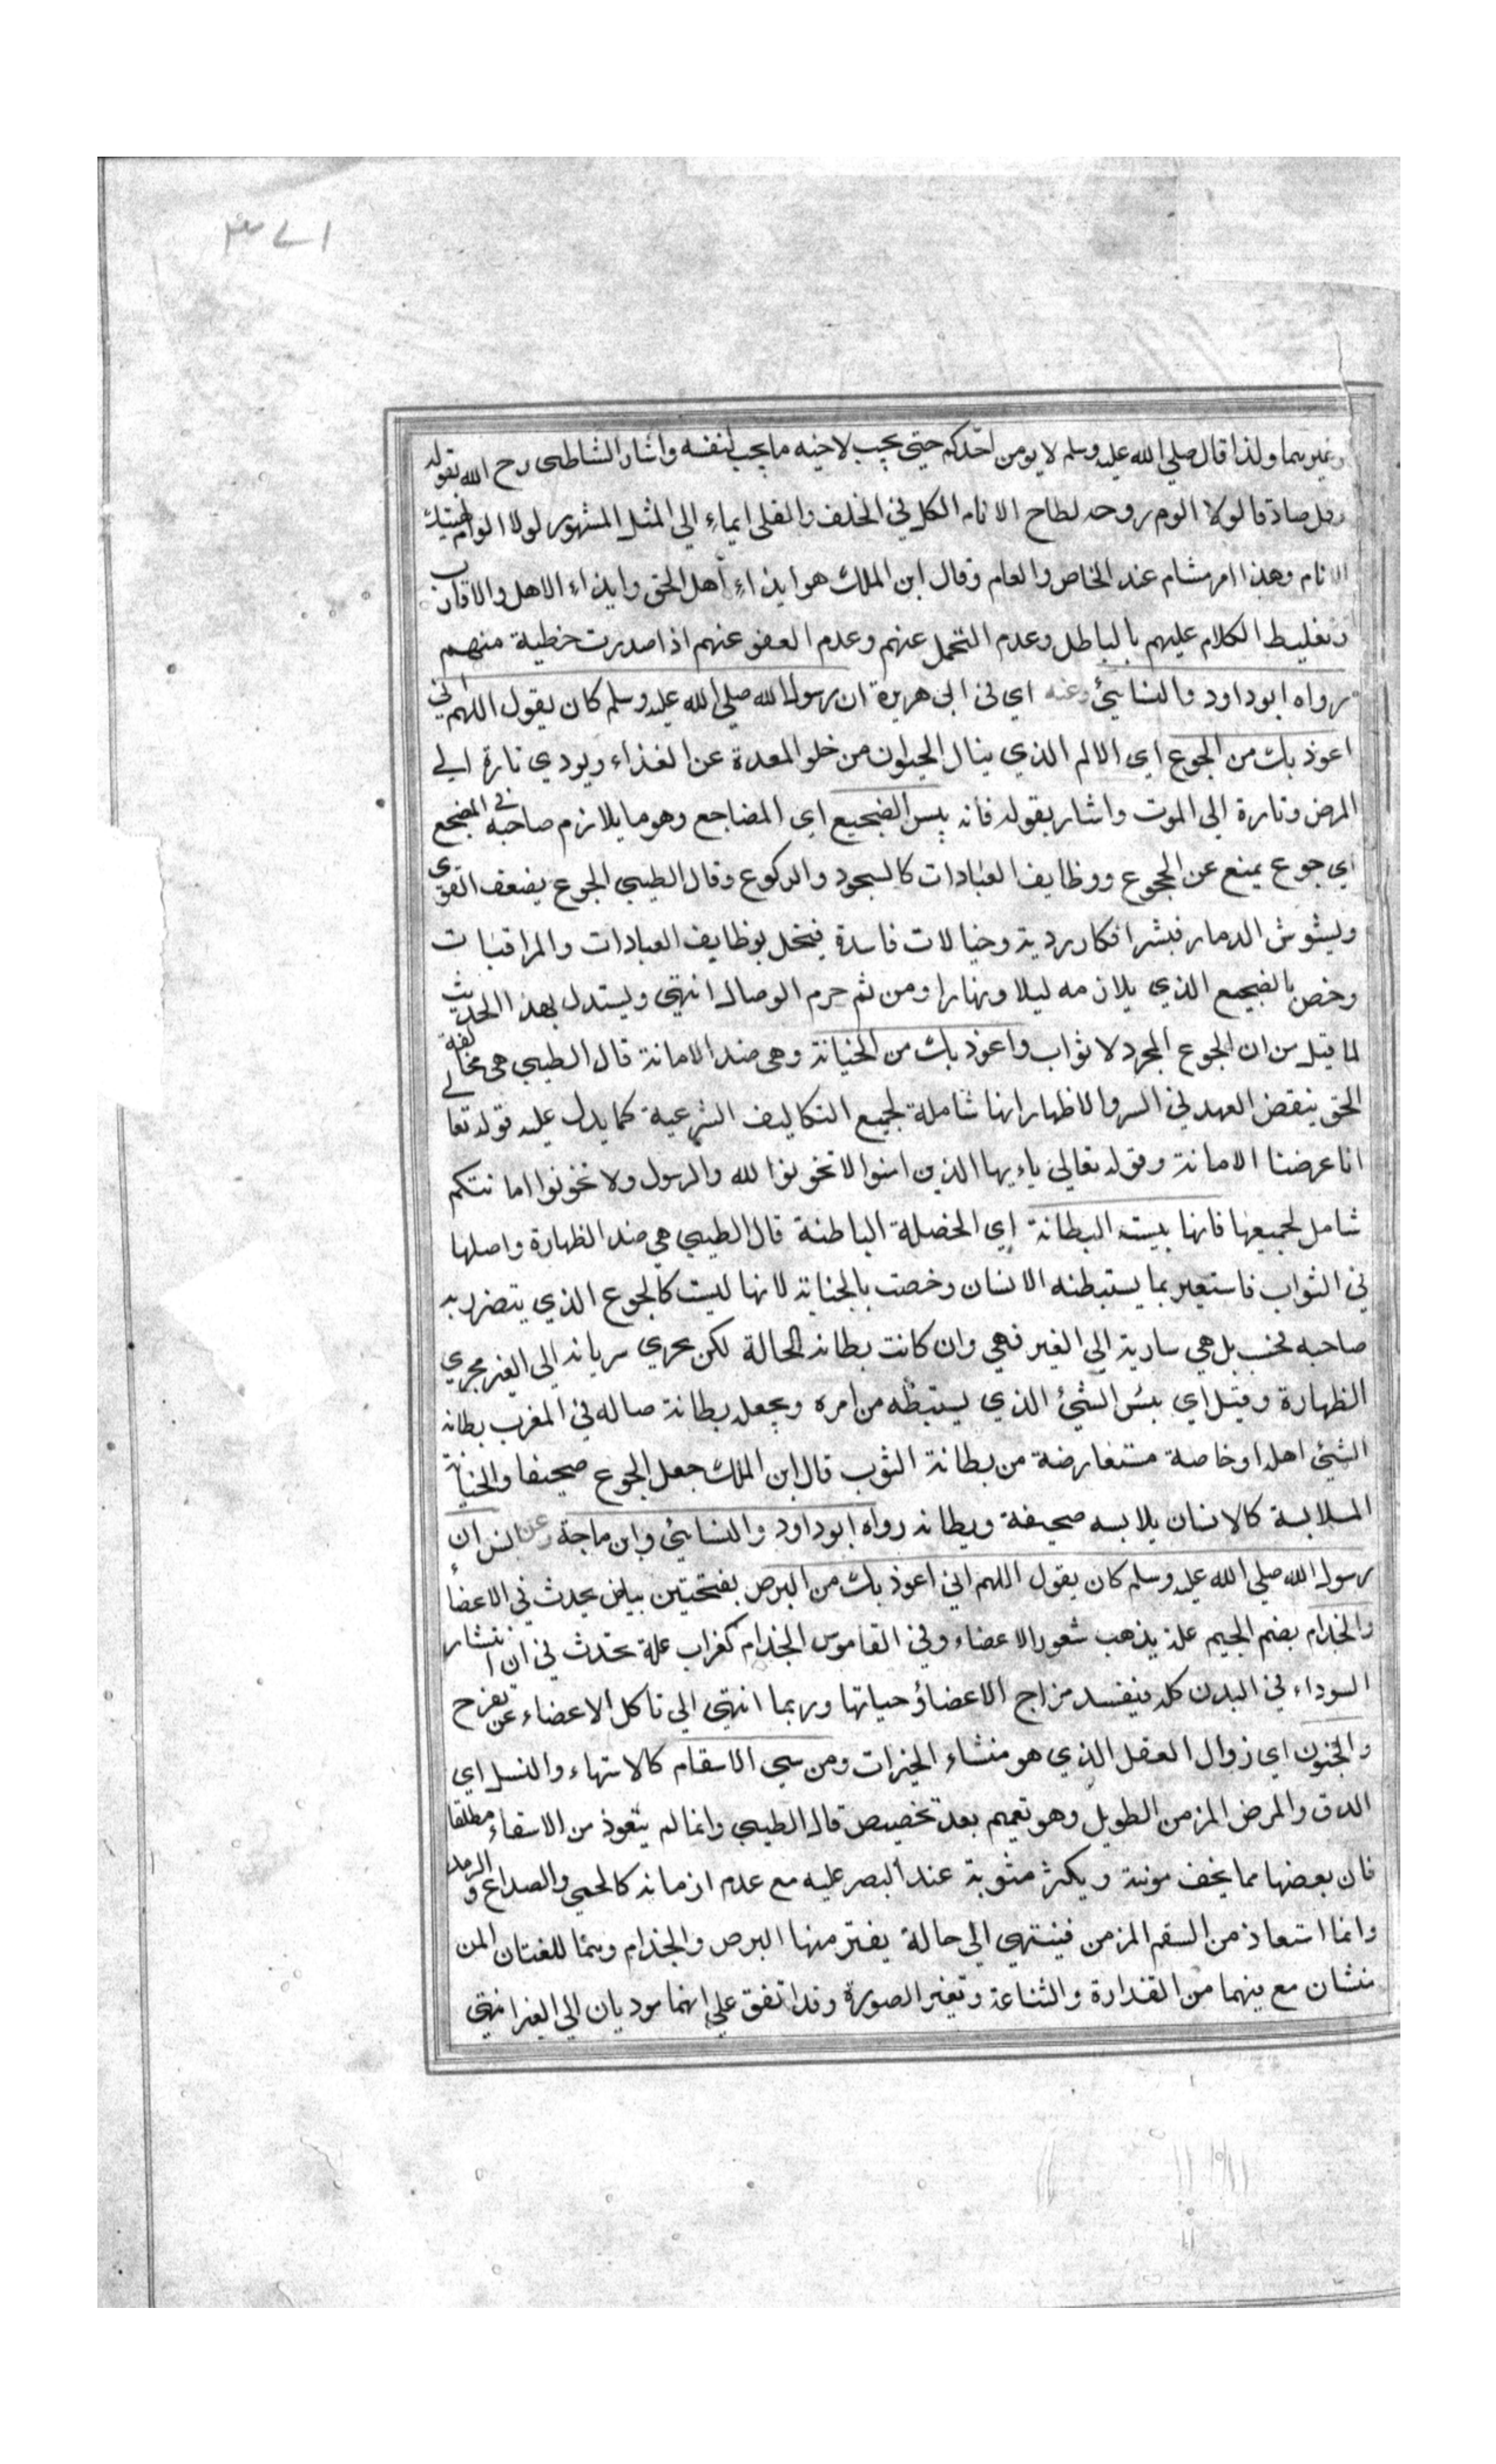 وغيرهما ولذا قال صلي الله عليه وسلم لا يومن احدكم حتي يحب لاخيه ما يحب لنفسه واشار الشاطبي رح الله بقوله
وقل صادقا لولا الوم وروحه لطاح الانام الكل في الخلف والقلي ايماء الي المثل المشهور لولا الوام
الانام وهذا امر مشام عند الخاص والعام وقال ابن الملك هو ايذاء اهل الحق وايذاء الاهل والاقارب
وتغليظ الكلام عليهم بالباطل وعدم التحمل عنهم وعدم العفو عنهم اذا صدرت خطية منهم
رواه ابوداود والنسائي وعنه اي في ابي هريرة ان رسول الله صلي الله عليه وسلم كان يقول اللهم اني
اعوذ بك من الجوع اي الالم الذي ينال الحيوان من خلو المعدة عن الغذاء ويودي تارة الي
المرض وتارة الي الموت واشار بقوله فانه بيس الضجيع اي المضاجع وهو ما يلازم صاحبه في المضجع
اي جوع يمنع عن الهجوع ووظايف العبادات كالسجود والركوع وقال الطيبي الجوع يضعف القوي
ويشوش الدماغ فيشر افكار ردية وخيالات فاسدة فيخل بوظايف العبادات والمراقبات
وخص بالضجيع الذي يلازمه ليلا ونهارا ومن ثم حرم الوصال انتهي ويستدل بهذا الحديث
لما قيل من ان الجوع المجرد لا ثواب واعوذ بك من الخيانة وهي ضد الامانة قال الطيبي هي مخالفة
الحق بنقض العهد في السر والاظهار انها شاملة لجميع التكاليف الشرعية كما يدل عليه قوله تعالي
انا عرضنا الامانة وقوله تعالي ياءيها الذين امنوا لا تخونوا الله والرسول ولا تخونوا امانتكم
شامل لجميعها فانها بيست البطانة اي الخصلة الباطنة قال الطيبي هي ضد الظهارة واصلها
في الثواب فاستعير بما يستبطنه الانسان وخصت بالجناية لانها ليست كالجوع الذي يتضرر به
صاحبه فحسب بل هي سارية الي الغير فهي وان كانت بطانه الحالة لكن يجري سريانه الي الغير مجري
الظهارة وقيل اي بئس الشيئ الذي يستبطنه من امره ويجعله بطانة صاله في المغرب بطانه
الشيئ اهله او خاصة مستعارضة من بطانة الثوب قال ابن الملك جعل الجوع صحيفا والخيانة
الملابسة كالانسان يلابسه صحيفة وبطانه رواه ابوداود والنسائي وابن ماجة وعن انس ان
رسول الله صلي الله عليه وسلم كان يقول اللهم اني اعوذ بك من البرص بفتحتين بياض يحدث في الاعضاء
والجذام بضم الجيم علة يذهب شعور الاعضاء وفي القاموس الجذام كغراب علة تحدث في ان انتشار
السوداء في البدن كله فيفسد مزاج الاعضاء وحياتها وربما انتهي الي تاكل الاعضاء عن تقرح
والجنون اي زوال العقل الذي هو منشاء الخيرات ومن سيي الاسقام كالاستهاء والنسل اي
الدق والمرض المزمن الطويل وهو تعميم بعد تخصيص قال الطيبي وانما لم يتعوذ من الاسقاء مطلقا
فان بعضها مما يخف مونته ويكثر مثوبة عند البصر عليه مع عدم ازمانه كالحمي والصداع والرمد
وانما استعاذ من السقم المزمن فينتهي الي حالة يفتر منها البرص والجذام وهما للغتان المن
منشان مع ينهما من القذارة والشناعة وتغير الصورة وقد اتفق علي انهما موديان الي الغير انتهي